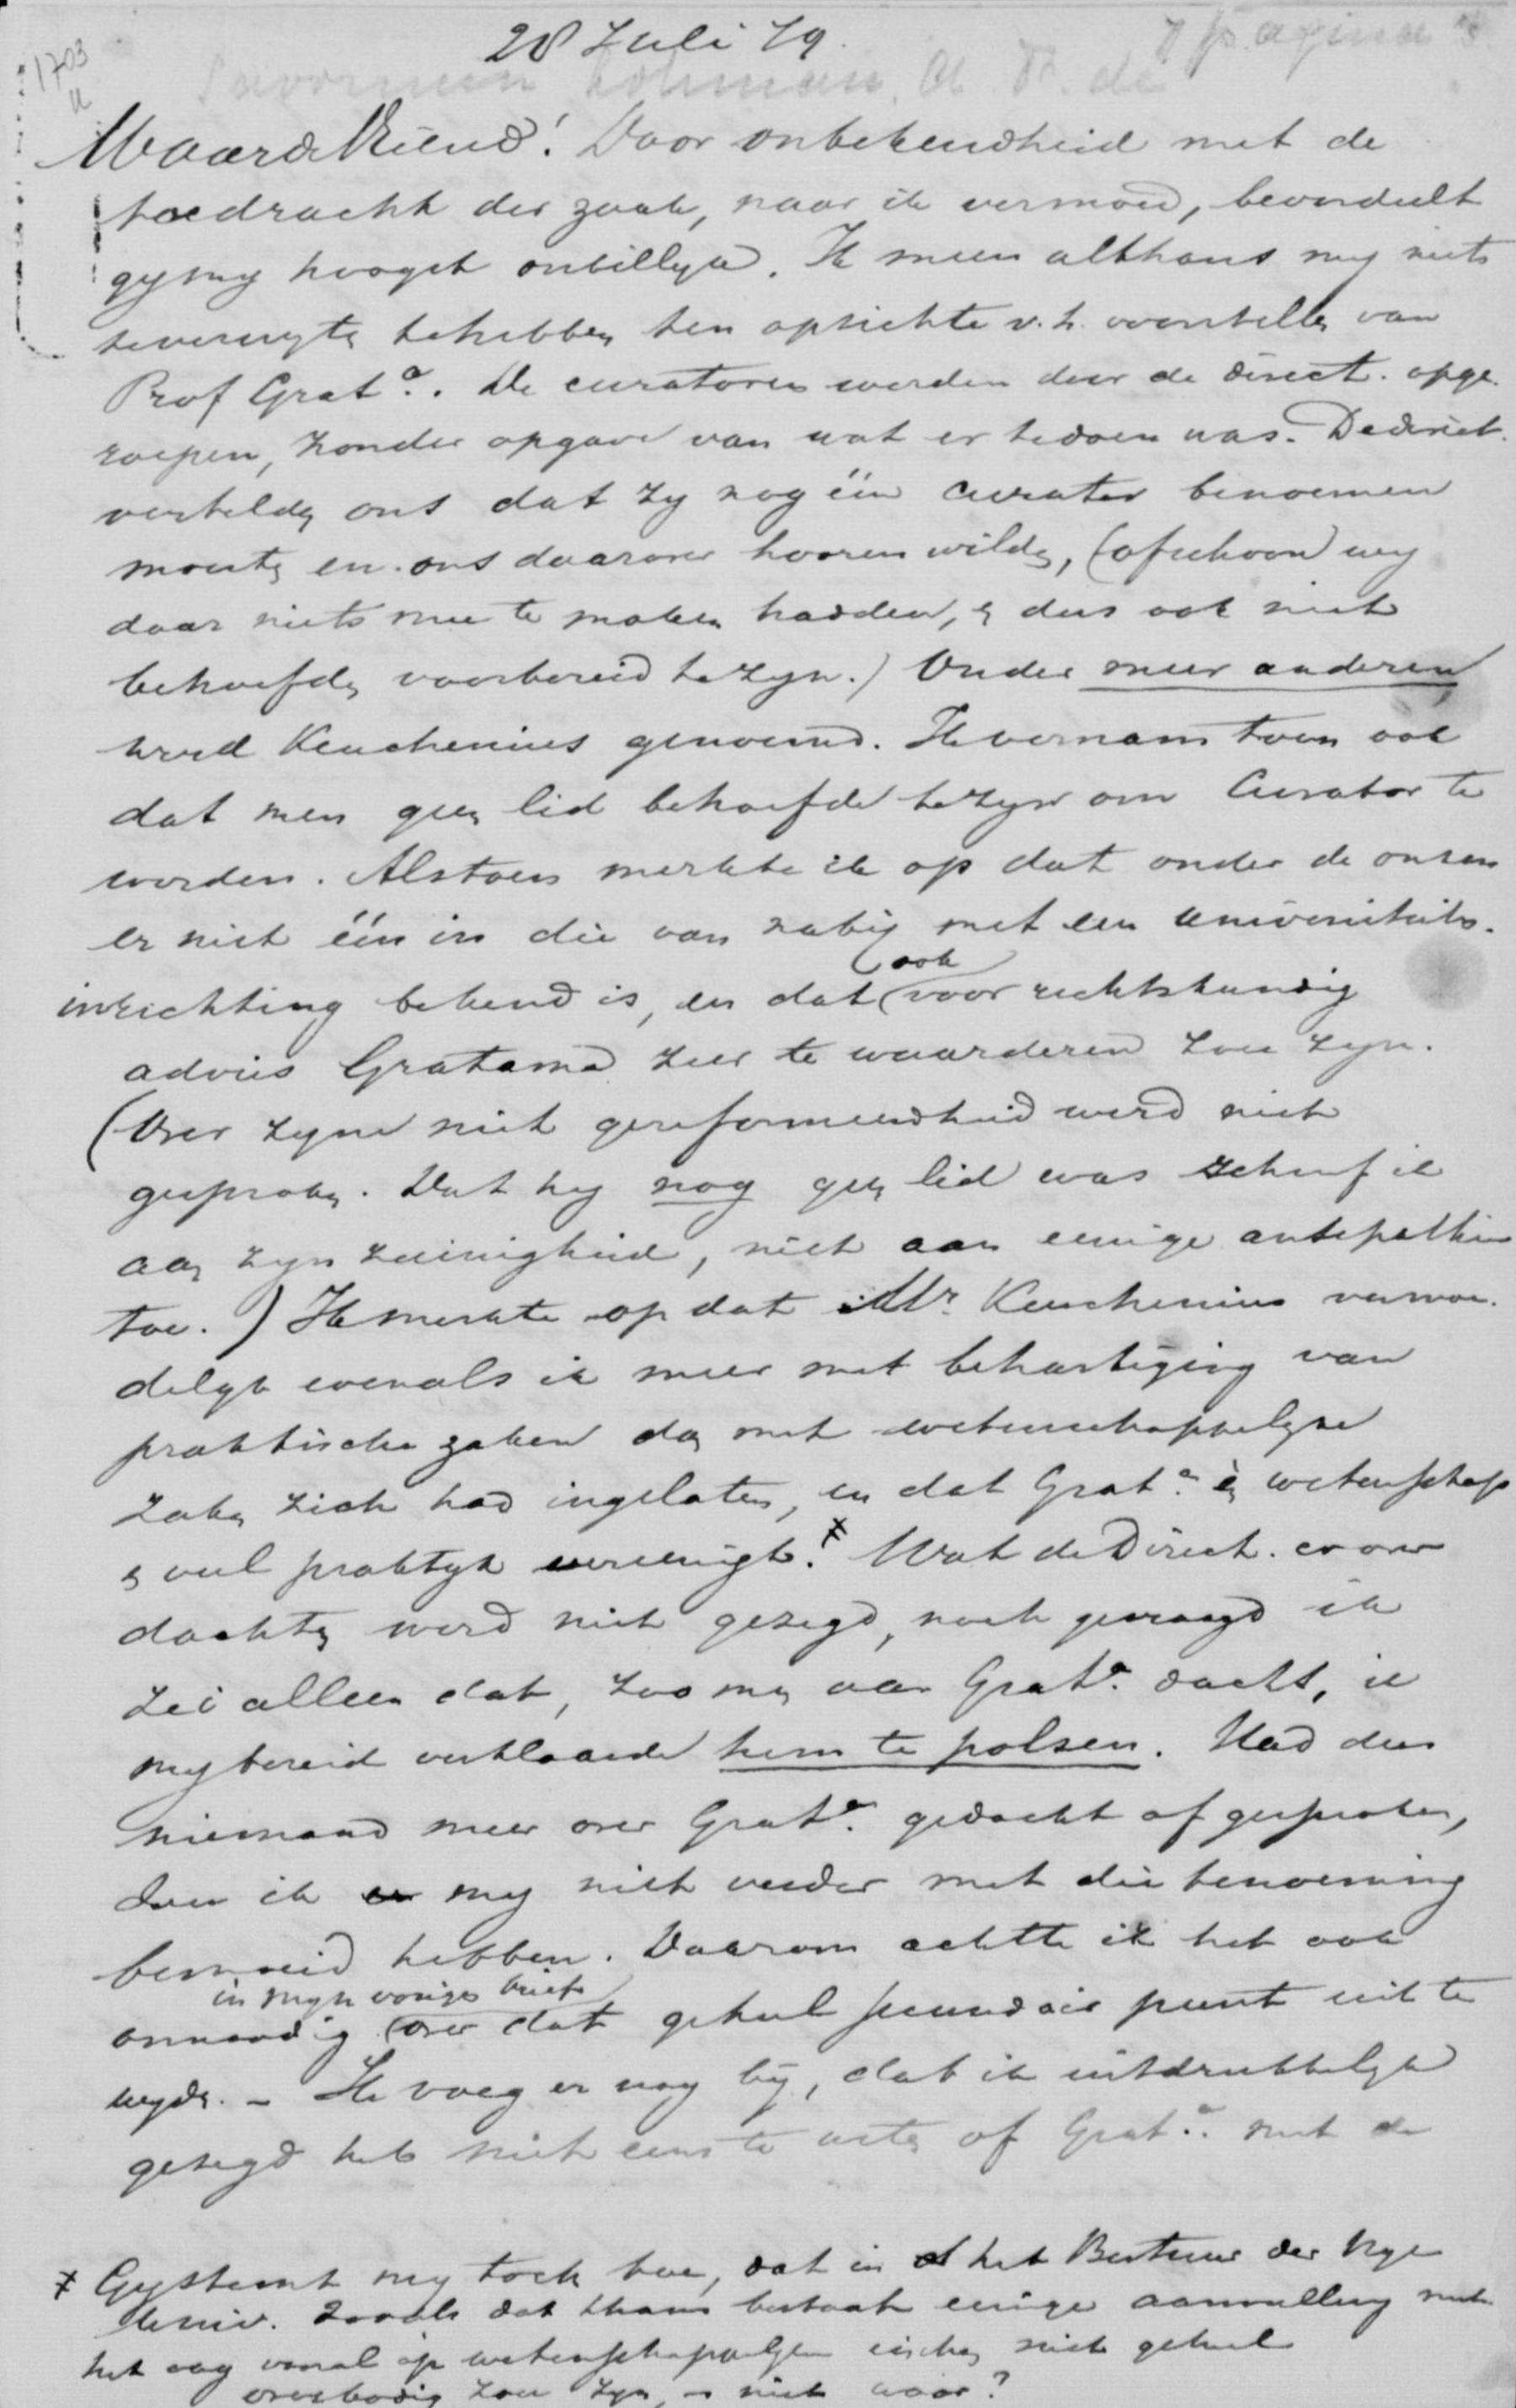 28 Juli 79.
7 pagina's.
1703
Savornin Lohman, A. F. de
Waarde Vriend! Door onbekendheid met de
toedracht der zaak, naar ik vermoed, beoordeelt
gy my hoogst onbillyk. Ik meen althans my niets
te verwyten te hebben ten opzichte v. h. voorstellen van
Prof Grat.a. De curatoren werden door de direct. opge-
roepen, zonder opgave van wat er te doen was. De direct.
vertelde ons dat zy nog één curator benoemen
moesten en ons daarover hooren wilden, (ofschoon wy
daar niets mee te maken hadden, & dus ook niet
behoefden voorbereid te zyn.) Onder meer anderen
werd Keuchenius genoemd. Ik vernam toen ook
dat men geen lid behoefde te zyn om Curator te
worden. Alstoen merkte ik op dat onder de onzen
er niet één is die van naby met een universiteits-
inrichting bekend is, en dat (ook) voor rechtskundig
advies Gratama zeer te waarderen zou zyn.
(Over zyne niet gereformeerdheid werd niet
gesproken. Dat hy nog geen lid was schreef ik
aan zyn zuinigheid, niet aan eenige antipathie
toe.) Ik merkte op dat Mr. Keuchenius vermoe-
delyk evenals ik meer met behartiging van
praktische zaken dan met wetenschappelyke
zaken zich had ingelaten, en dat Grat.a èn wetenschap
& veel praktyk vereenigt.ǂ Wat de Direct. er over
dachten werd niet gezegd, noch gevraagd ik
zei alleen dat, zoo men aan Grat.a dacht, ik
my bereid verklaarde hem te polsen. Had dus
niemand meer over Grat.a gedacht of gesproken,
dan ik zou my niet verder met die benoeming
bemoeid hebben. Daarom achtte ik het ook
in myn vorigen brief
onnoodig over dat geheel secundair punt uit te
wyden. – Ik voeg er nog by, dat ik uitdrukkelyk
gezegd heb niet eens te weten of Grat.a. met de
ǂ Gy stemt my toch toe, dat in het Bestuur der Vrye
Univ. zooals dat thans bestaat eenige aanvulling met
het oog vooral op wetenschappelyke eischen niet geheel
overbodig zou zyn, – niet waar?